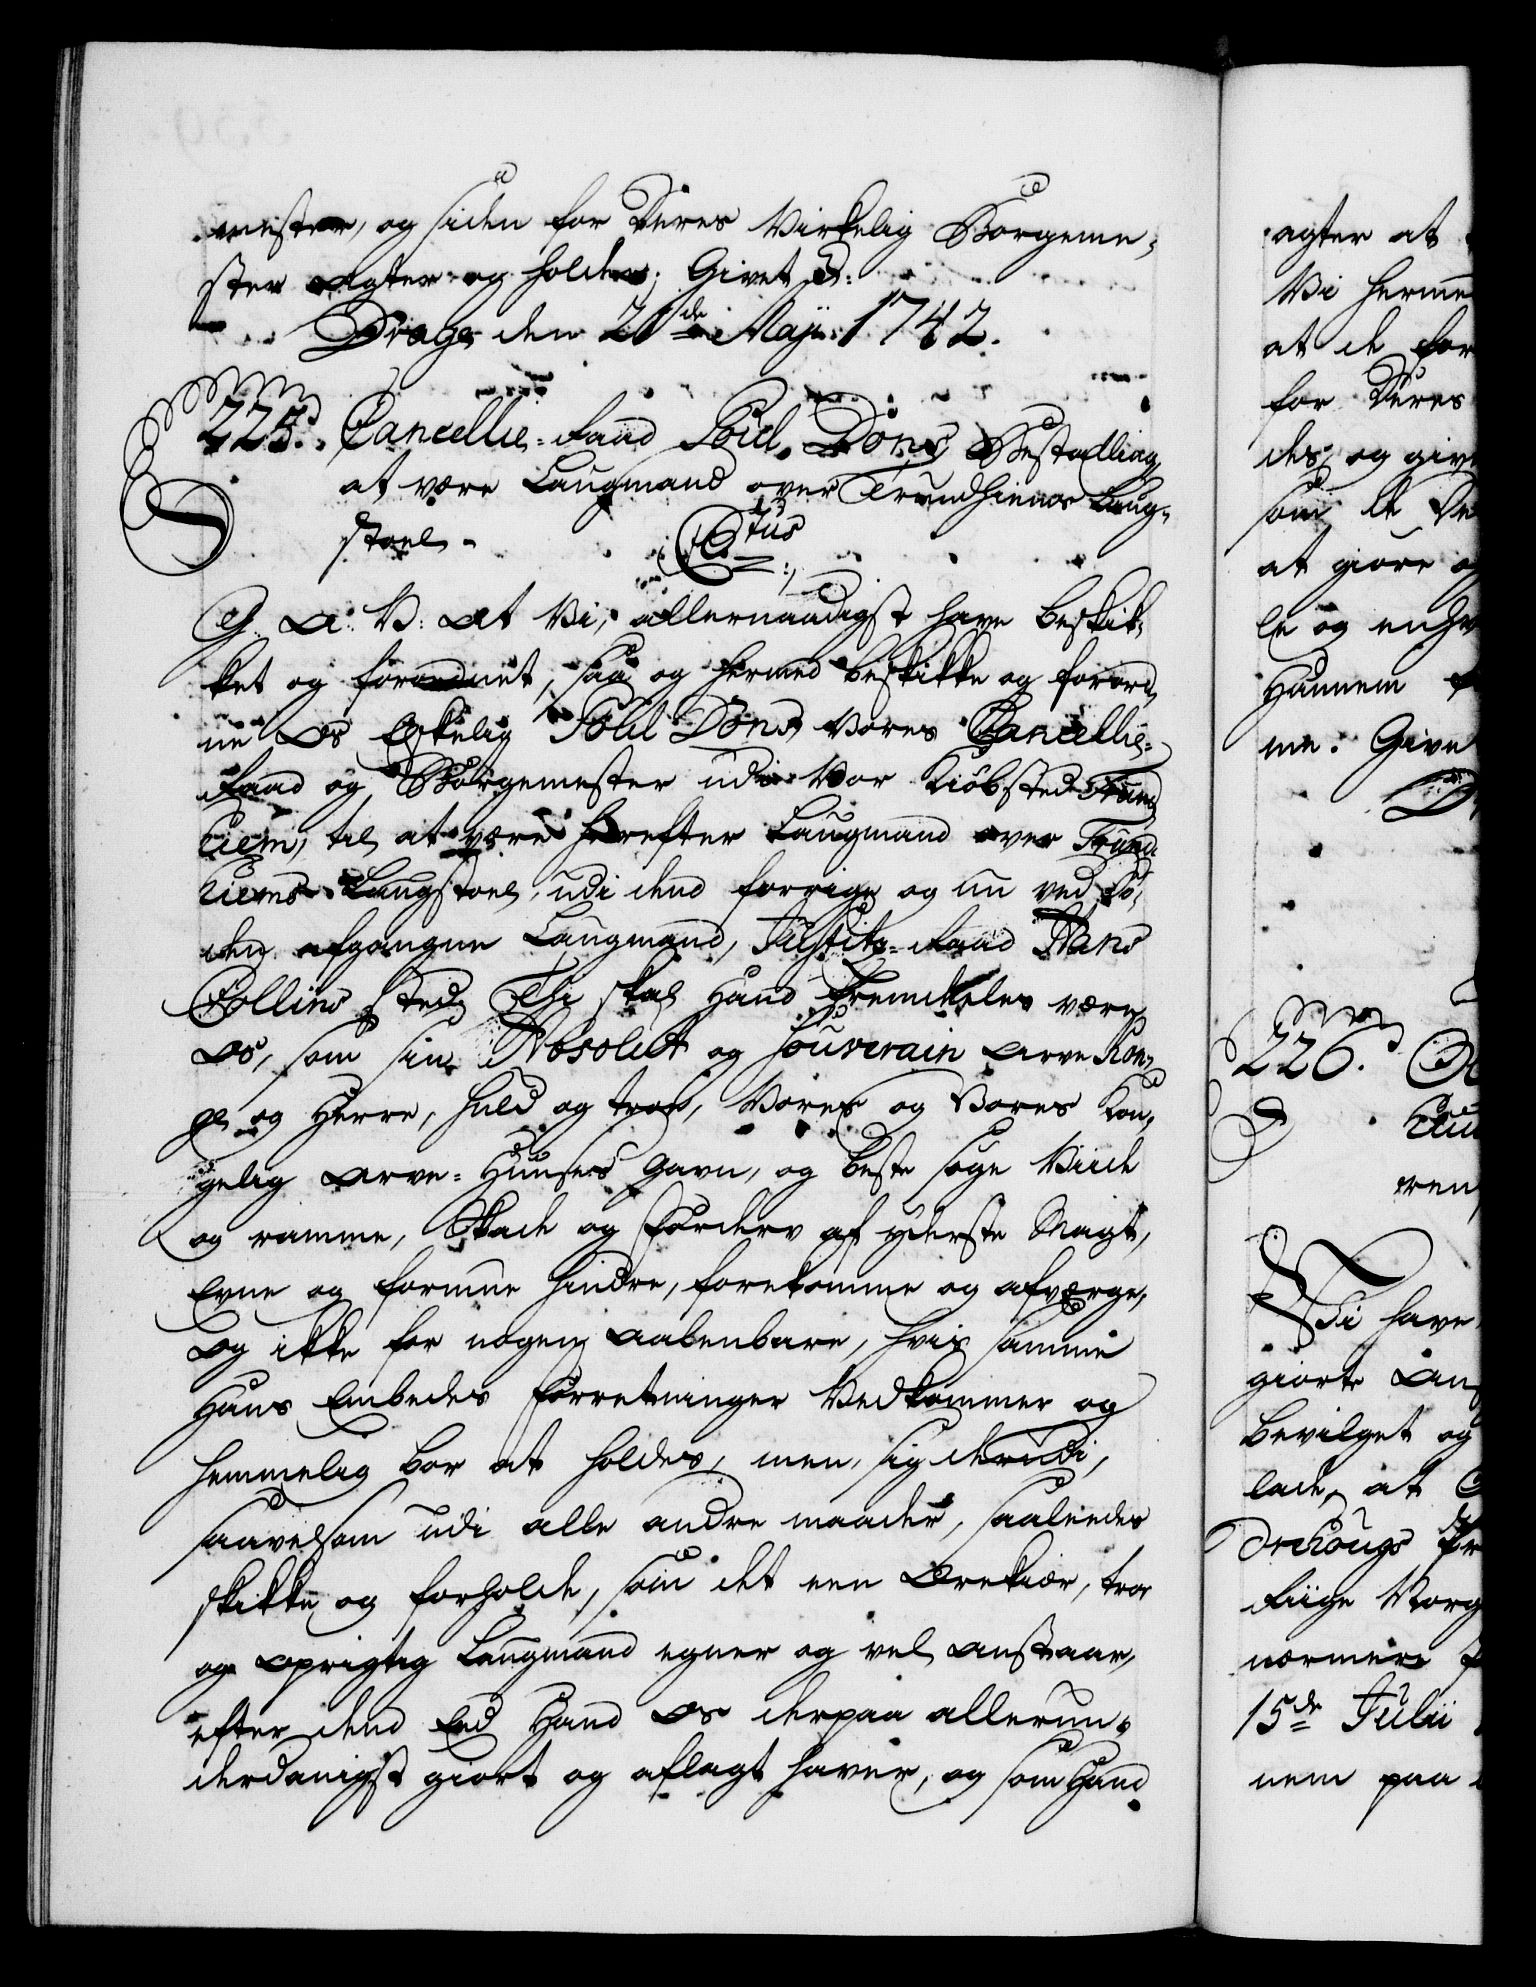 mester, og siden for Deres Virkelig Borgeme-
ster agter og holder; Givet p:
Drage den 21de Maji 1742.
225. Cancellie-Raad Poul Dons Bestalling
at være Laugmand over Trundhiems Laug-
stoel.
G. A: V: At Vi, allernaadigst have beskik-
ket og forordnet, saa og hermed beskikke og forord-
ne Os Elskelig Poul Dons, Vores Cancellie-
Raad og Borgemester udi Vor Kiöbsted Trund-
hiem, til at være herefter Laugmand over Trund-
hiems Laugstoel, udi dend forrige og nu ved Dö-
den afgangne Laugmand, Justits-Raad Hans
Collins sted; Thi skal Hand fremdeeles være
Os, som sin Absolut og Souverain Arve Kon-
ge og Herre, huld og troe, Vores og Vores Kon-
gelig Arve-Huuses Gavn, og beste söge Viide
og ramme, Skade og Forderv af yderste Magt,
Evne og formue hindre, forekomme og afværge,
Og ikke for nogen aabenbare, hvis samme
Hans Embedes Forretninger Vedkommer og
hemmelig bör at holdes, men sig derudi,
saavelsom udi alle andre maader, saaledes
skikke og forholde, som det een Ærekiær, troe
og oprigtig Laugmand egner og vel anstaar,
efter dend Eed Hand Os derpaa allerun-
derdanigst giort og aflagt haver, og som Hand
agter at
Vi herme
at de for
for Deres
des, og give
som de De
at giöre og
le og enhv
Hannem
me. Give
D
226.
ren
Vi have
giorte An
bevilget og
lade, at
nærmere
15de Julii
nem paa